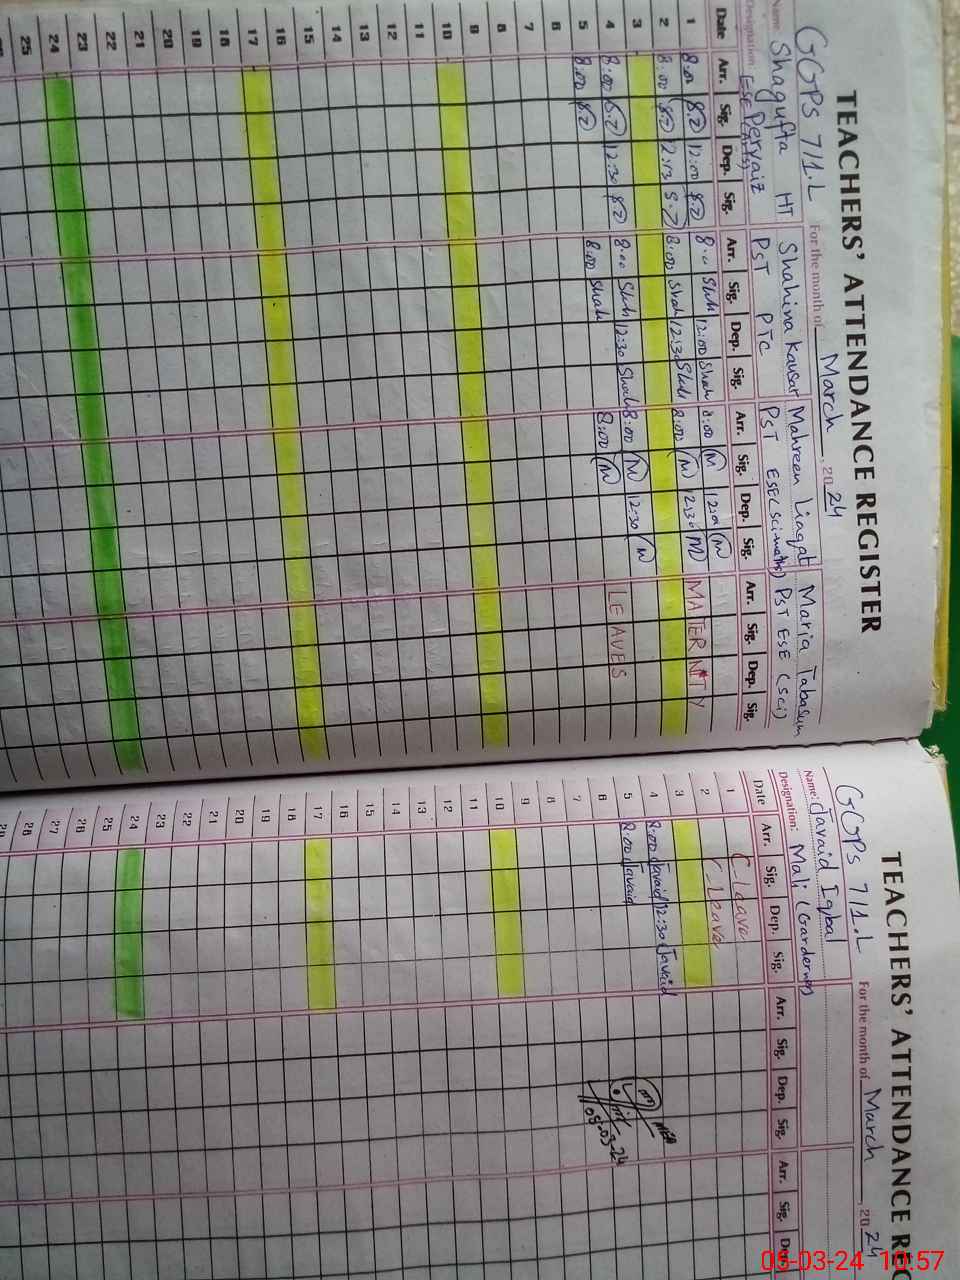 TEACHERS' ATTENDANCE REGISTER
GGPS 7/1.L For the month of March, 2024
Name: Shagufta Pervaiz HT Shahina Kausar Mahreen Liaqat Maria Tabasum
Designation: ESE (Arts) PST PTC PST ESE (Sci-maths) PST ESE (Sci)
Date Arr. Sig. Dep. Sig. Arr. Sig. Dep. Sig. Arr. Sig. Dep. Sig. Arr. Sig. Dep. Sig.
1 8:00 12:00 8:00 Shah 12:00 Shah 8:00 M 12:00 M MATERNITY
2 8:00 8:00 Shah 12:30 Shah 8:00 M 12:30 M
3
4 8:00 12:30 8:00 Shah 12:30 Shah 8:00 M 12:30 M LEAVES
5 8:00 8:00 Shah 8:00 M
6
7
8
9
10
11
12
13
14
15
16
17
18
19
20
21
22
23
24
25
TEACHERS' ATTENDANCE REG
GGPS 7/1.L For the month of March, 2024
Name: Javaid Iqbal
Designation: Mali (Gardener)
Date Arr. Sig. Dep. Sig. Arr. Sig. Dep. Sig. Arr. Sig. De
1 C-leave
2 C-leave
3
4 8:00 Javaid 12:30 Javaid
5 8:00 Javaid
6
7
8
9
10
11
12
13
14
15
16
17
18
19
20
21
22
23
24
25
26
27
28
29
MEA
05-03-24
05-03-24 10:57